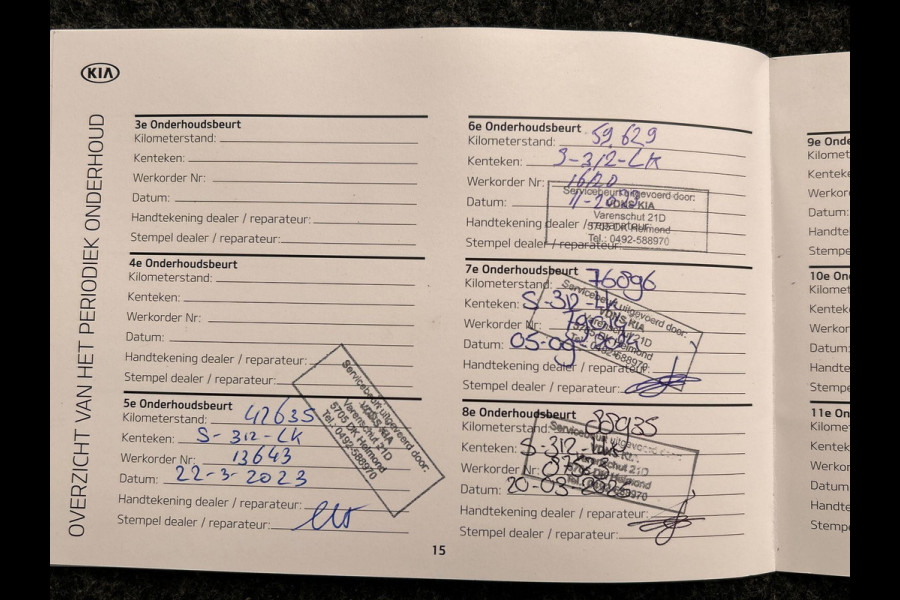 KIA
OVERZICHT VAN HET PERIODIEK ONDERHOUD
3e Onderhoudsbeurt
Kilometerstand:
Kenteken:
Werkorder Nr:
Datum:
Handtekening dealer / reparateur:
Stempel dealer / reparateur:
4e Onderhoudsbeurt
Kilometerstand:
Kenteken:
Werkorder Nr:
Datum:
Handtekening dealer / reparateur:
Stempel dealer / reparateur:
5e Onderhoudsbeurt
Kilometerstand: 42635
Kenteken: S-312-LK
Werkorder Nr: 13643
Datum: 22-3-2023
Handtekening dealer / reparateur:
Stempel dealer / reparateur:
Servicebeurt uitgevoerd door:
VDNS KIA
Varenschut 21D
5705 DK Helmond
Tel.: 0492-588970
6e Onderhoudsbeurt
Kilometerstand: 59.629
Kenteken: S-312-LK
Werkorder Nr:
Datum:
Handtekening dealer / reparateur:
Stempel dealer / reparateur:
Servicebeurt uitgevoerd door:
VDNS KIA
Varenschut 21D
5705 DK Helmond
Tel.: 0492-588970
7e Onderhoudsbeurt
Kilometerstand: 76096
Kenteken: S-312-LK
Werkorder Nr:
Datum: 05-09-
Handtekening dealer / reparateur:
Stempel dealer / reparateur:
Servicebeurt uitgevoerd door:
VDNS KIA
Varenschut 21D
5705 DK Helmond
Tel.: 0492-588970
8e Onderhoudsbeurt
Kilometerstand:
Kenteken: S-312-LK
Werkorder Nr:
Datum: 20-03-
Handtekening dealer / reparateur:
Stempel dealer / reparateur:
Servicebeurt uitgevoerd door:
VDNS KIA
Varenschut 21D
5705 DK Helmond
Tel.: 0492-588970
15
9e Onde
Kilomet
Kentek
Werkor
Datum:
Handte
Stempe
10e On
Kilomet
Kentek
Werkor
Datum:
Handte
Stempe
11e On
Kilomet
Kentek
Werkor
Datum:
Handte
Stemp